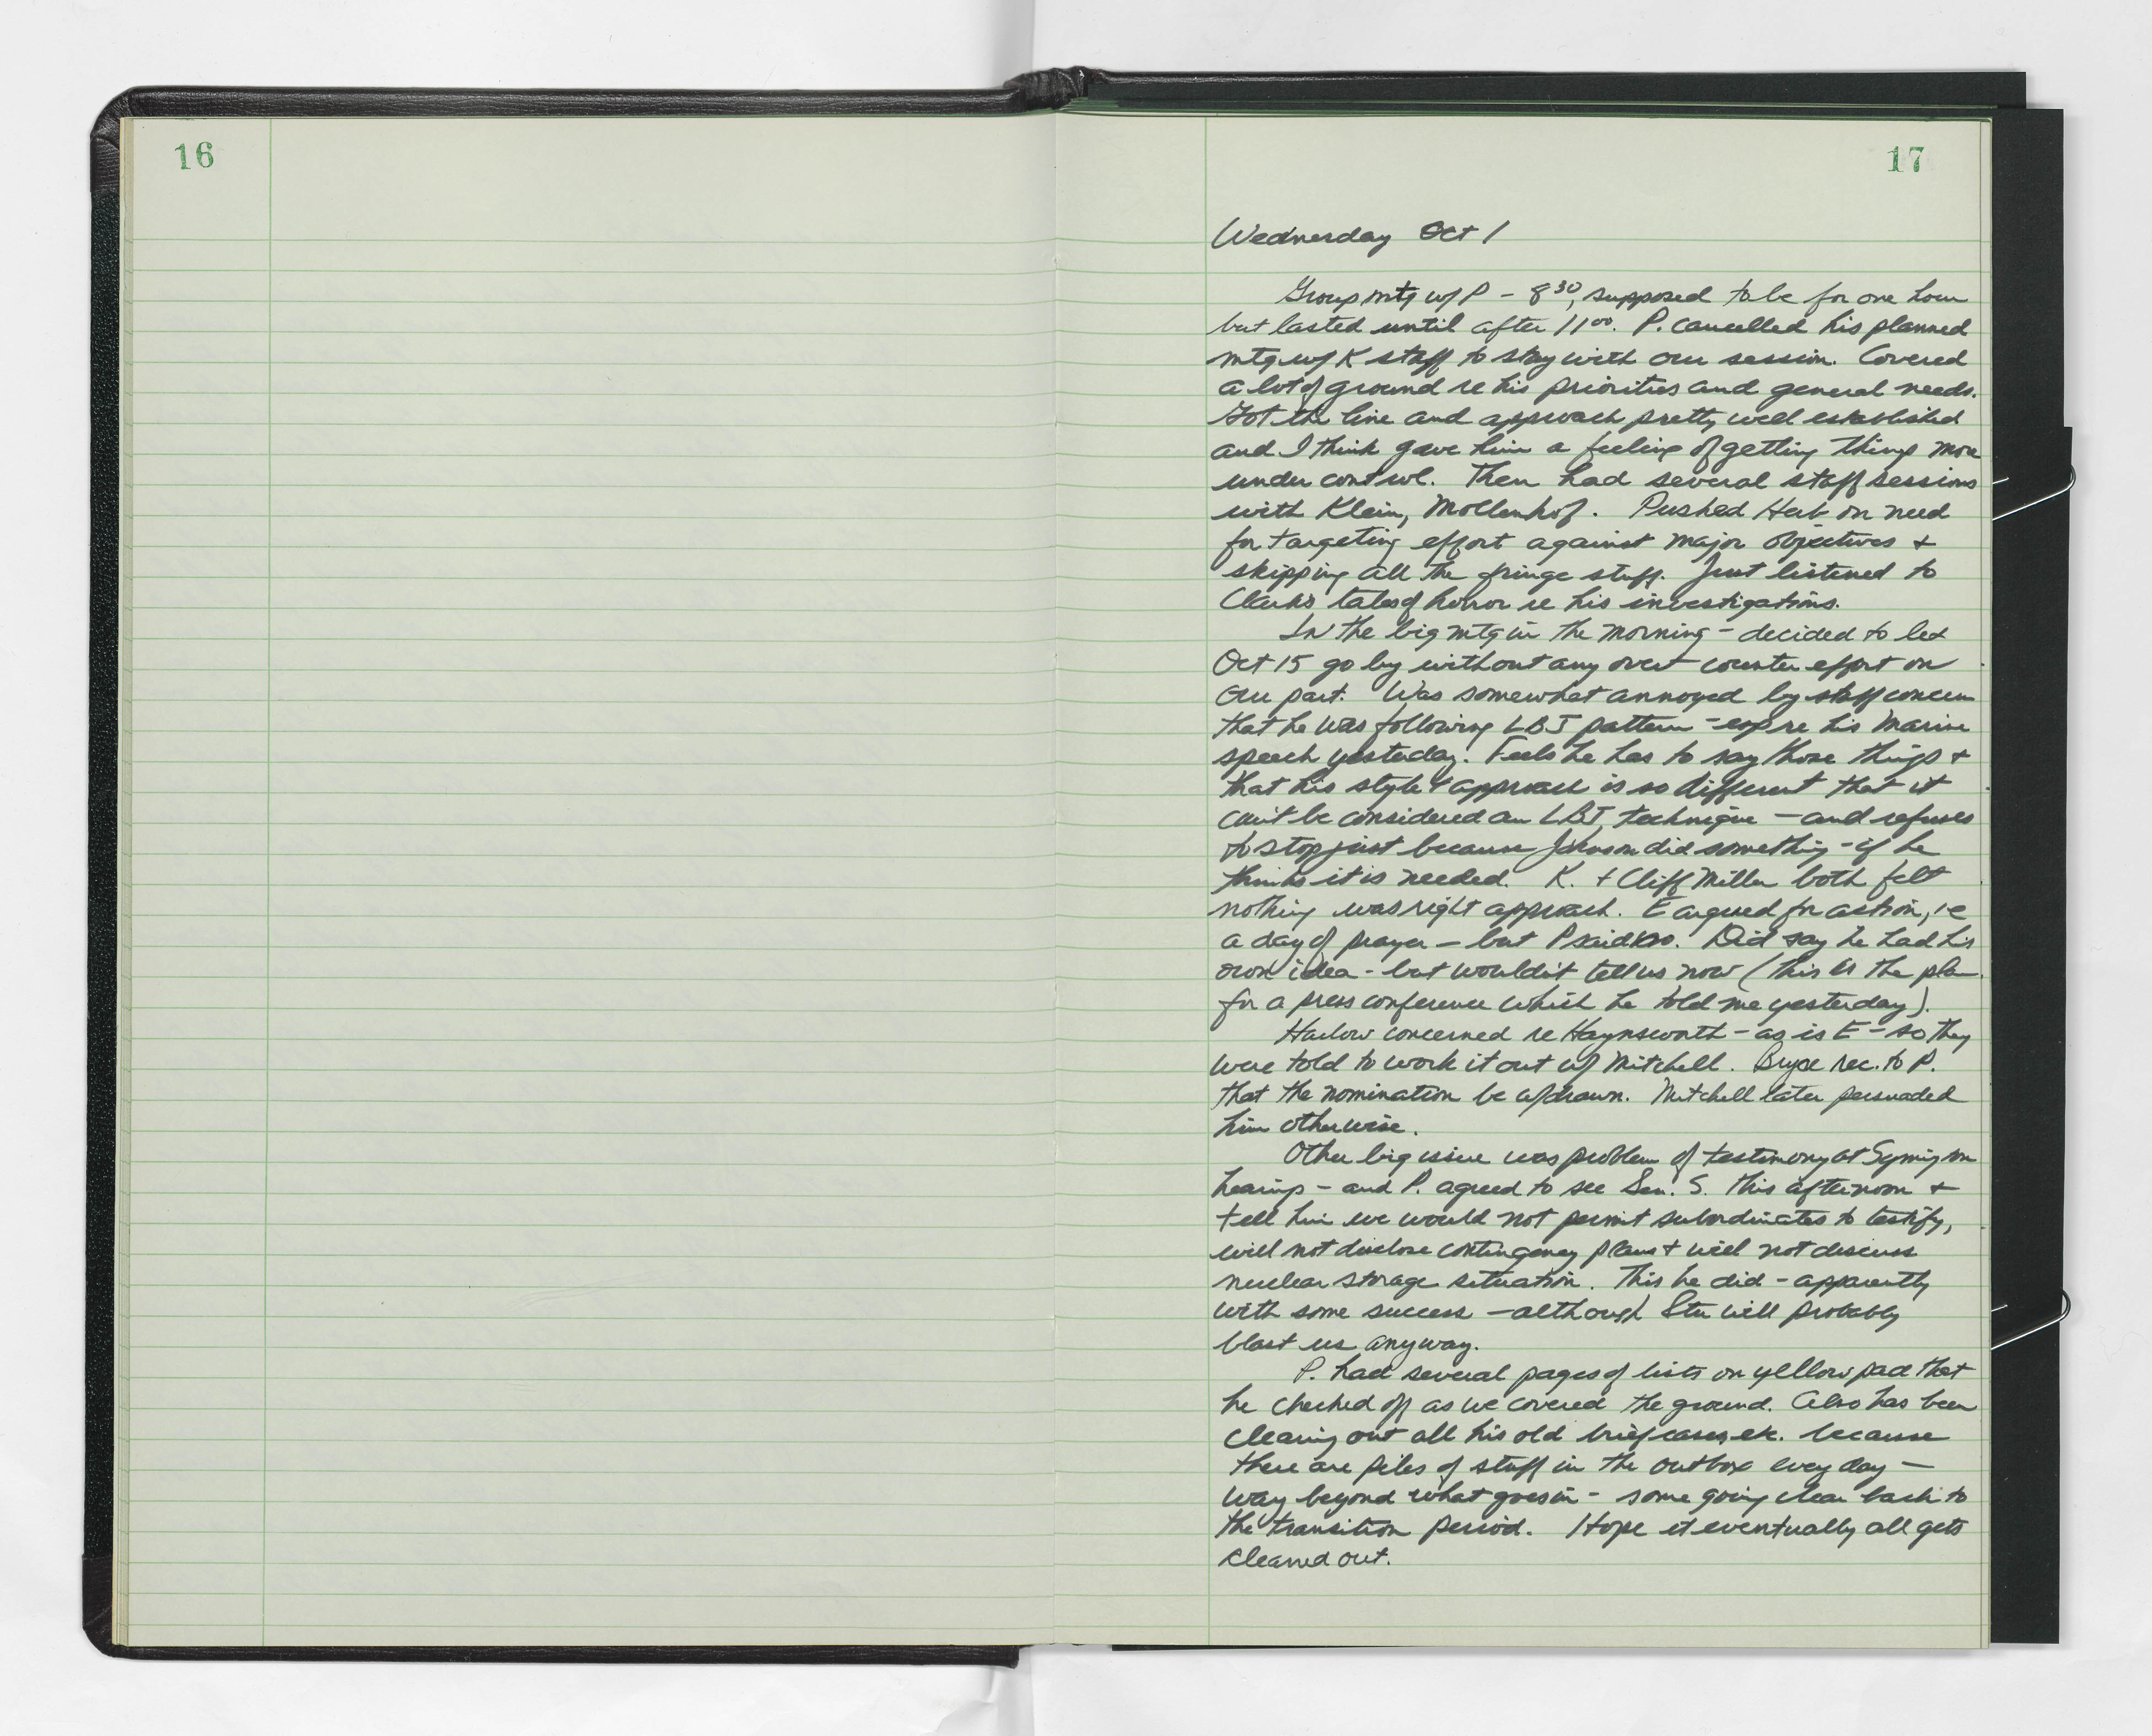 16
17
Wednesday Oct 1
Group mtg w/ P - 8 30, supposed to be for one hour
but lasted until after 11 00. P. cancelled his planned
mtg w/ K staff to stay with our session. Covered
a lot of ground re his priorities and general needs.
Got the line and approach pretty well established
and I think gave him a feeling of getting things more
under control. Then had several staff sessions
with Klein, Mollenhof. Pushed Herb on need
for targeting effort against major objectives +
skipping all the fringe stuff. Just listened to
Clark's tales of horror re his investigations.
In the big mtg in the morning - decided to let
Oct 15 go by without any overt counter effort on
our part. Was somewhat annoyed by staff concern
that he was following LBJ pattern - esp re his Marine
speech yesterday. Feels he has to say those things +
that his style & approach is so different that it
can't be considered an LBJ technique - and refuses
to stop just because Johnson did something - if he
thinks it is needed. K. + Cliff Miller both felt
nothing was right approach. E argued for action, ie
a day of prayer - but P said no. Did say he had his
own idea - but wouldn't tell us now (this is the plan
for a press conference which he told me yesterday).
Harlow concerned re Haynsworth - as is E - so they
were told to work it out w/ Mitchell. Bryce rec. to P.
that the nomination be w/drawn. Mitchell later persuaded
him otherwise.
Other big issue was problem of testimony at
hearings - and P. agreed to see Sen. S. this afternoon +
tell him we would not permit subordinates to testify,
will not disclose contingency plans + will not discuss
nuclear storage situation. This he did - apparently
with some success - although Stu will probably
blast us anyway.
P. had several pages of lists on yellow pad that
he checked off as we covered the ground. Also has been
clearing out all his old briefcases, etc. because
there are piles of stuff in the outbox every day -
way beyond what goes in - some going clear back to
the transition period. Hope it eventually all gets
cleared out.